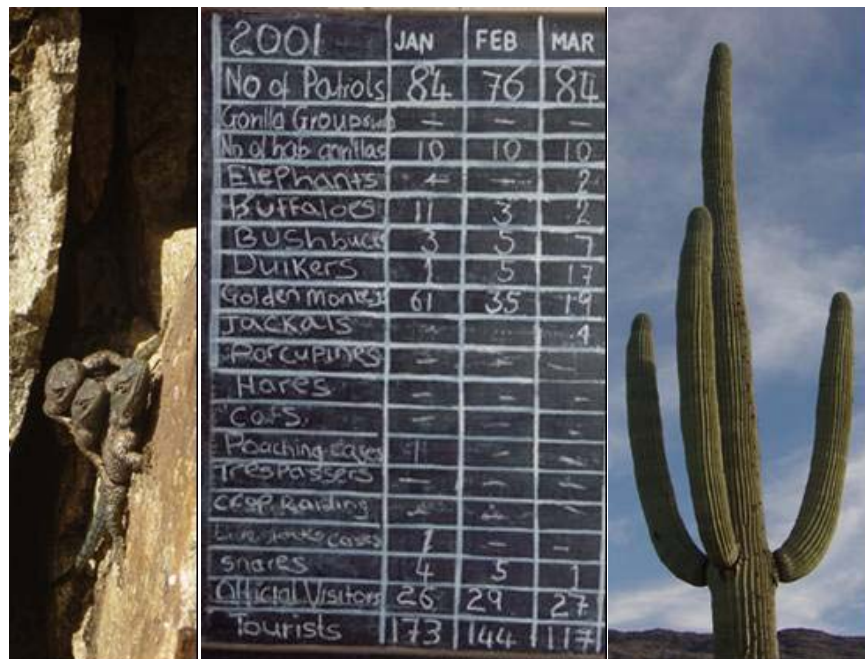 2001 JAN FEB MAR
No of Patrols 84 76 84
Gorilla Groups — — —
No of hab gorillas 10 10 10
Elephants — — 2
Buffaloes 11 3 2
Bushbuck 3 5 7
Duikers 1 5 17
Golden Monkeys 61 35 19
Jackals - - 4
Porcupines — — —
Hares — — —
Cats — — —
Poaching cases — —
Trespassers — — —
Crop Raiding — — —
cases 1 — —
Snares 4 5 1
Official Visitors 26 29 27
Tourists 173 144 117